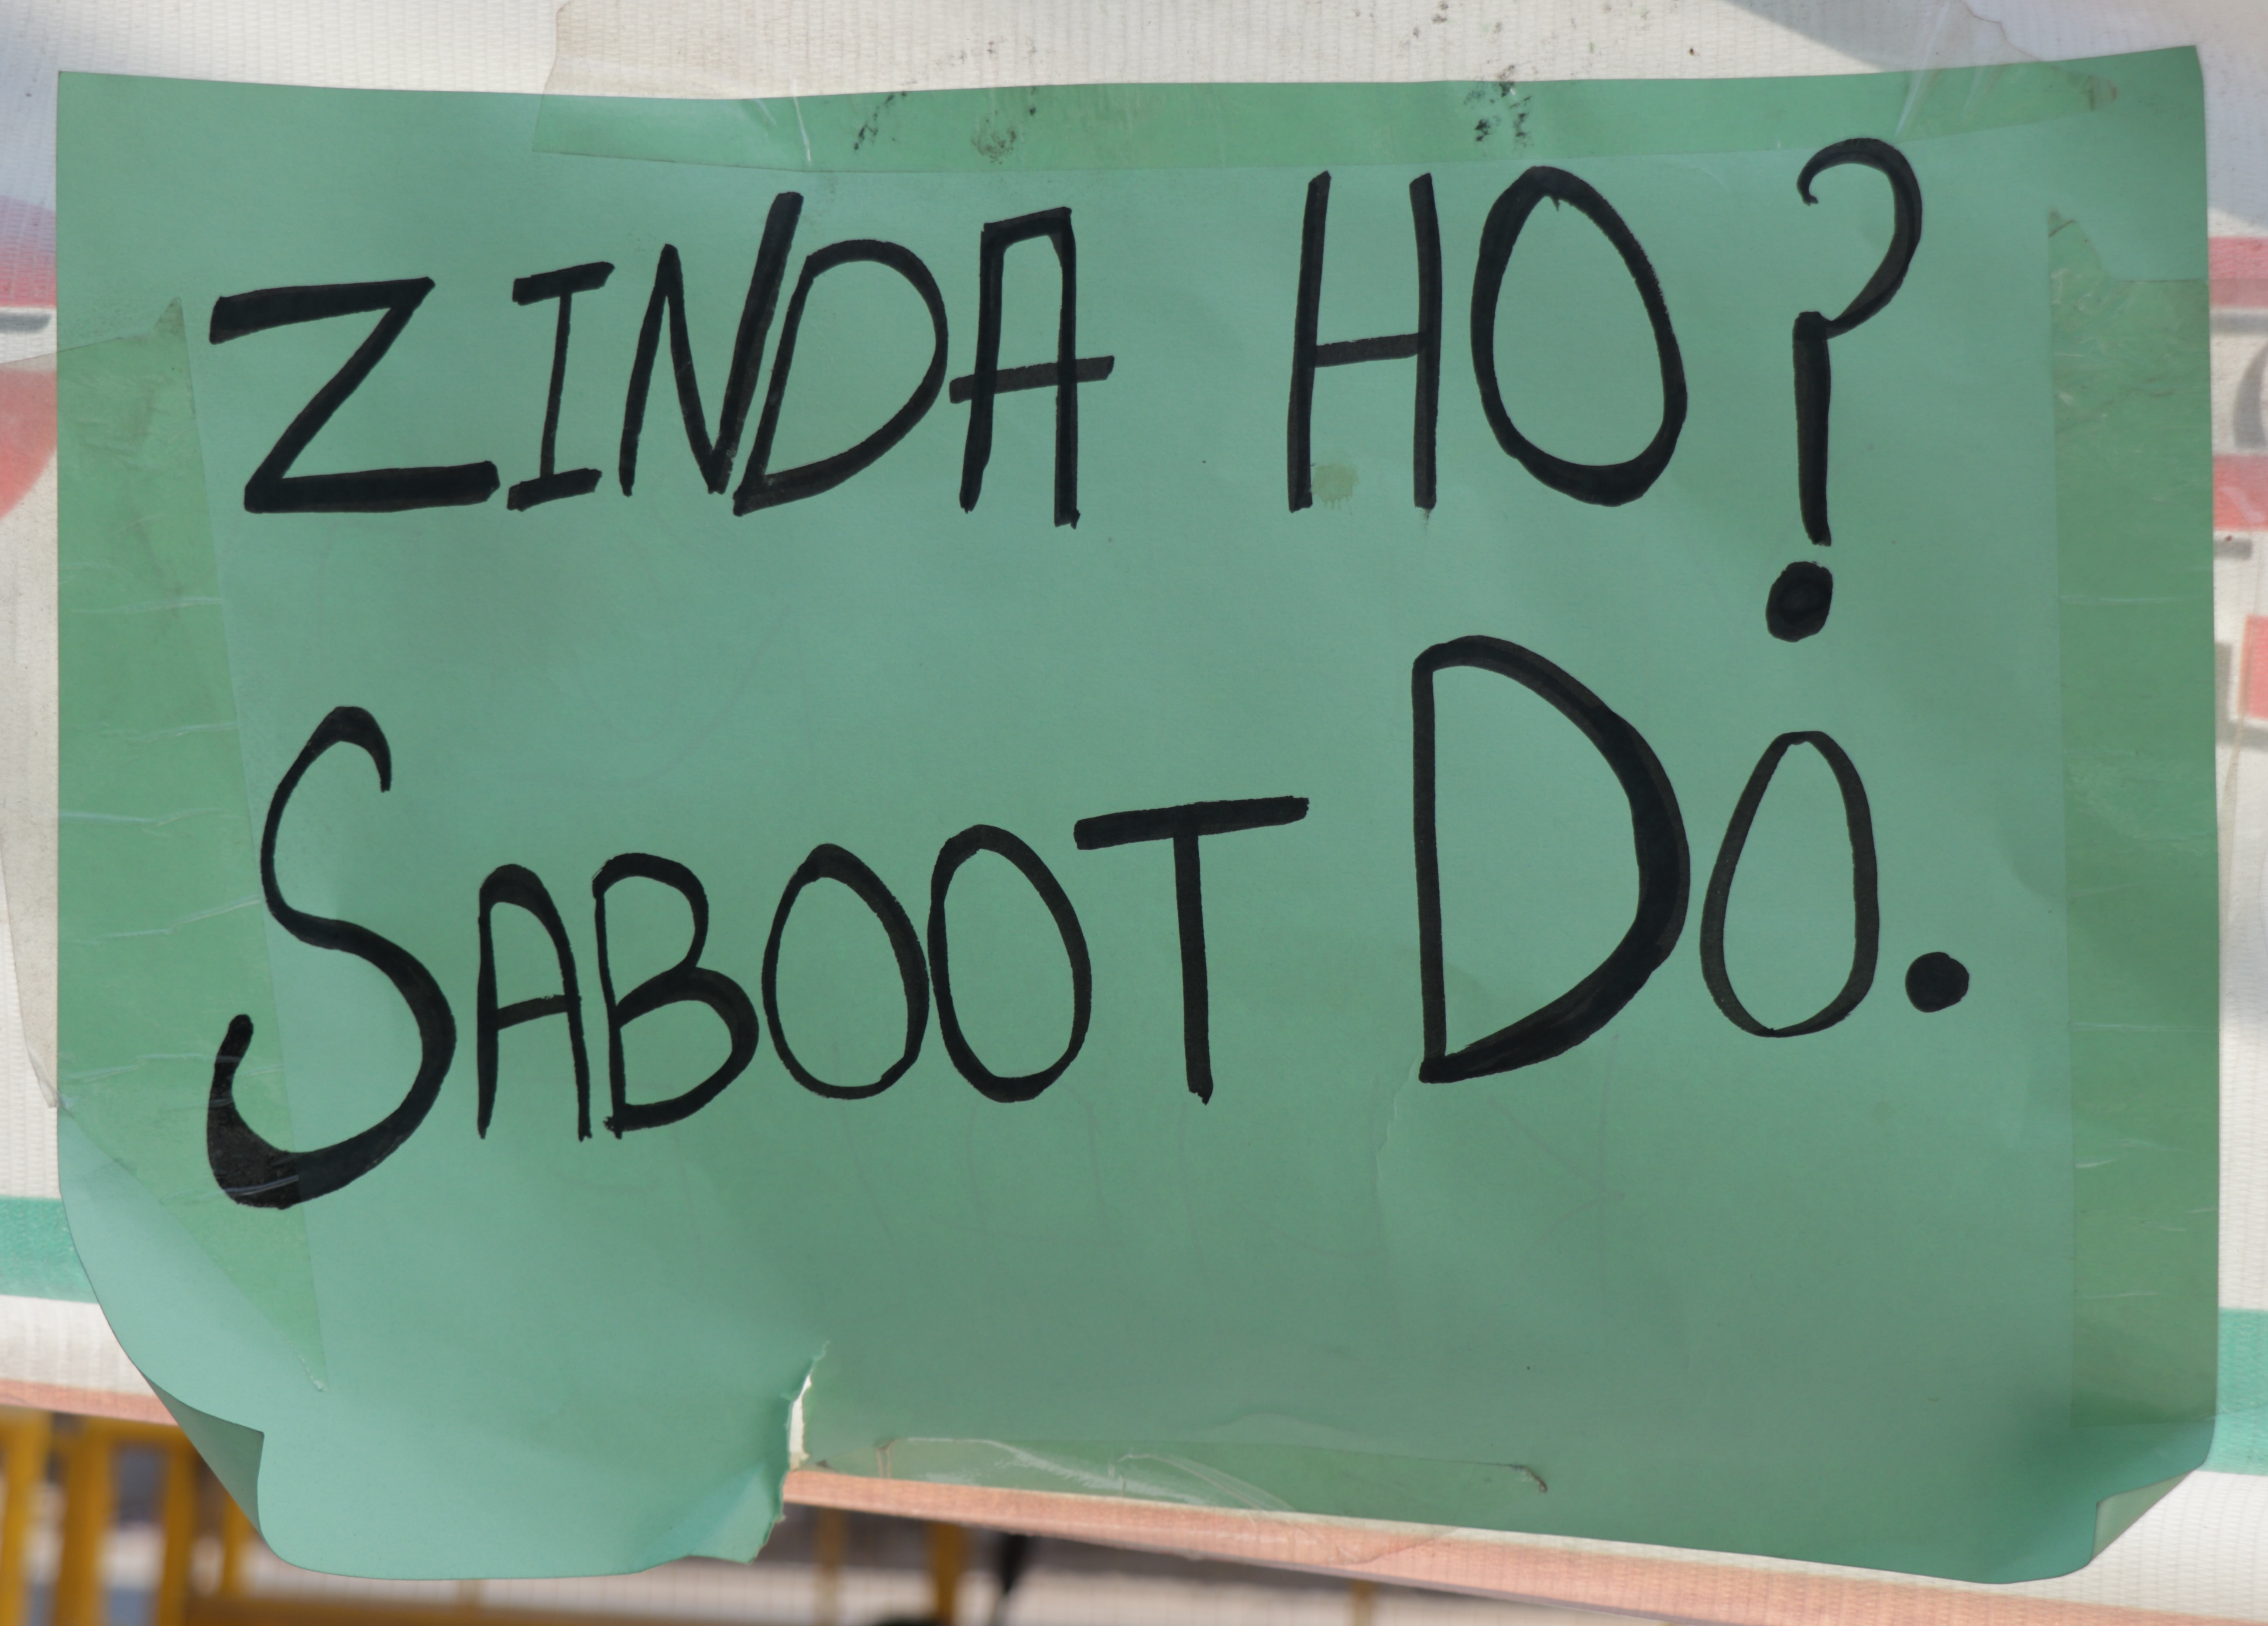 ZINDA HO?
SABOOT DO.